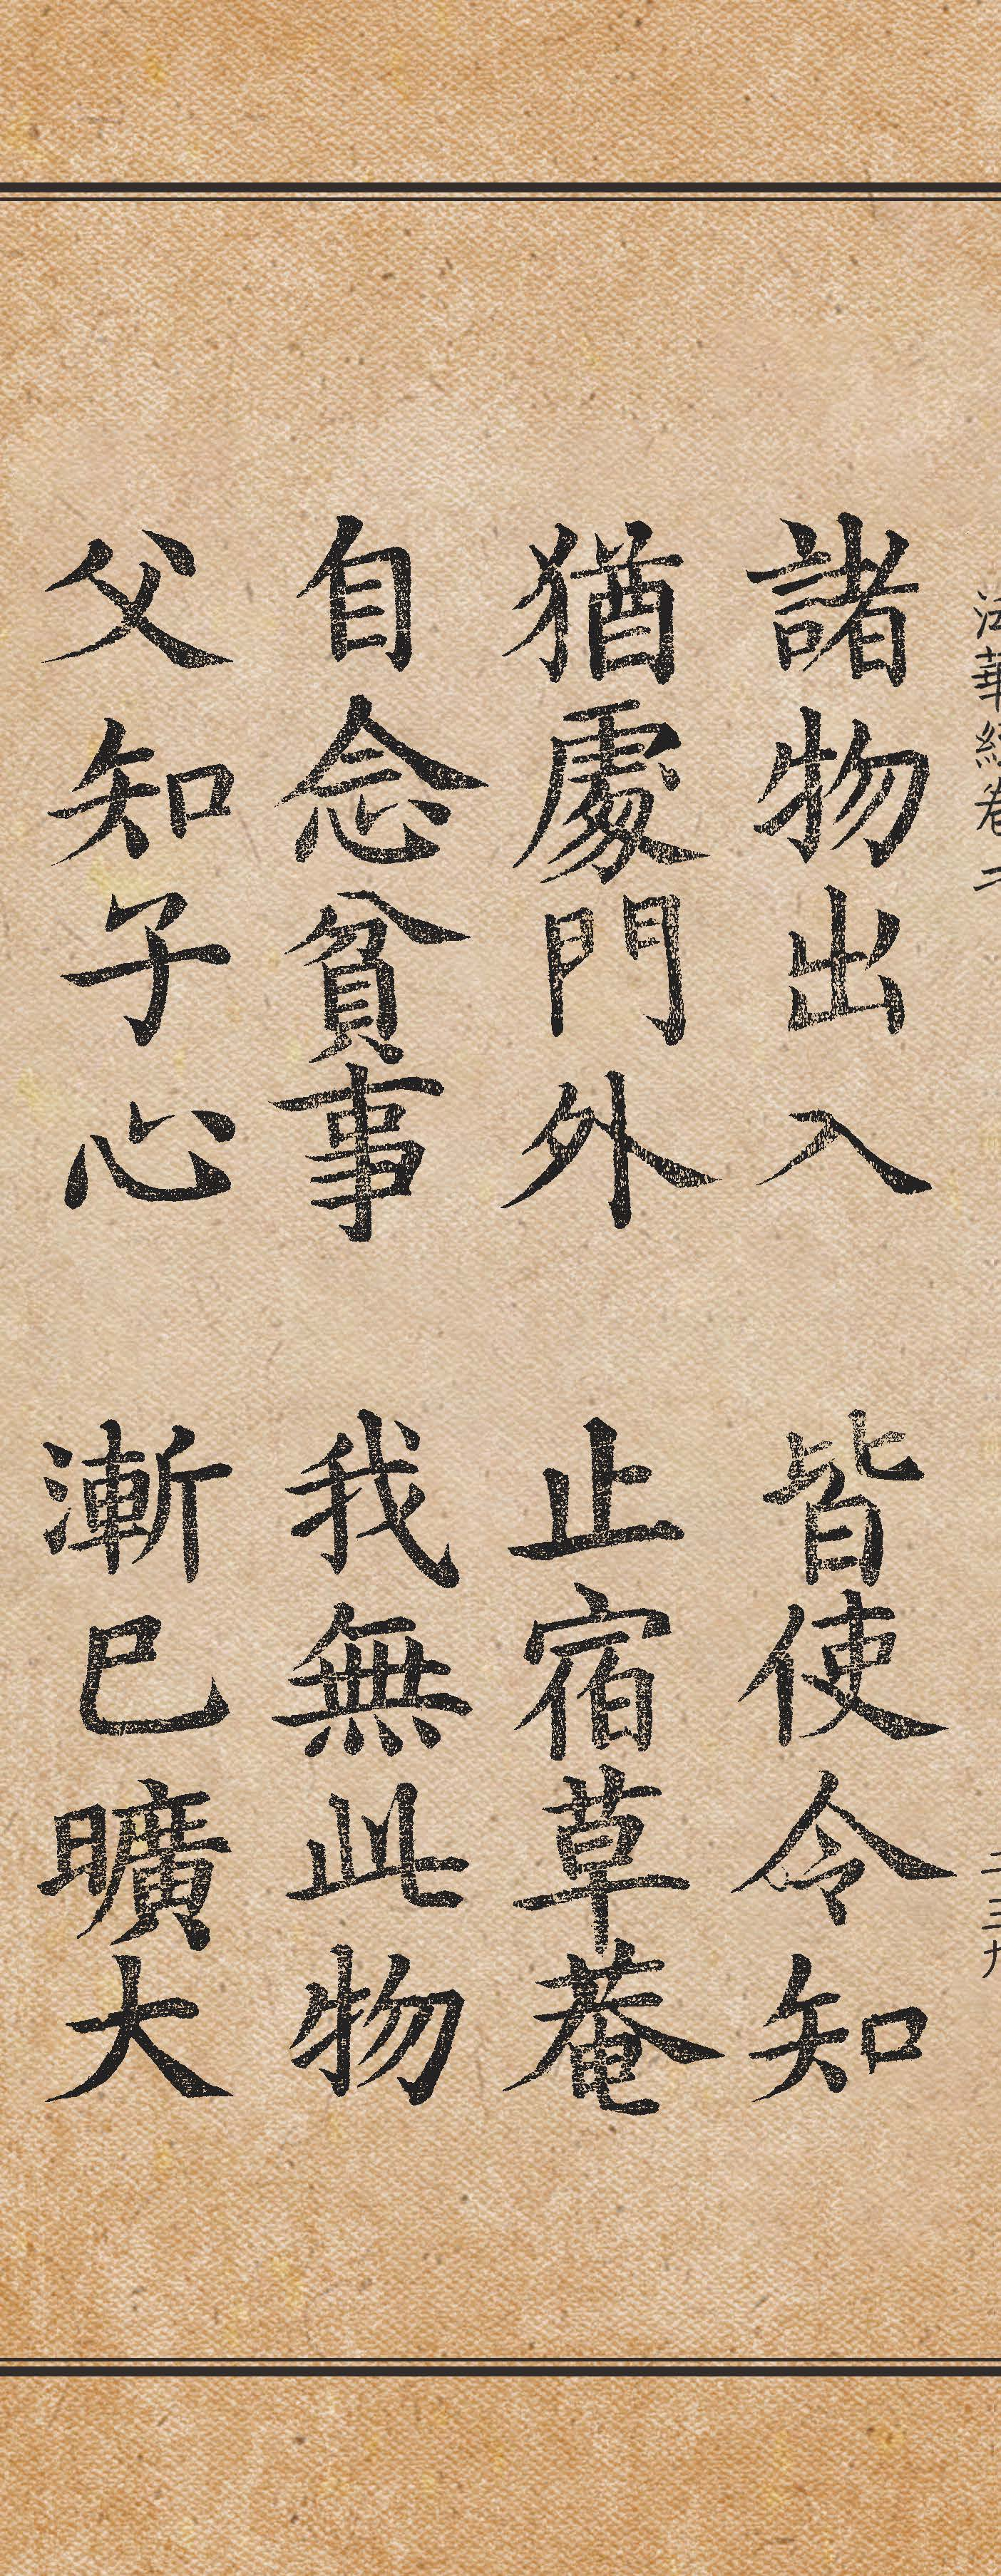 法華經卷二
二三九
諸物出入 皆使令知
猶處門外 止宿草菴
自念貧事 我無此物
父知子心 漸已曠大